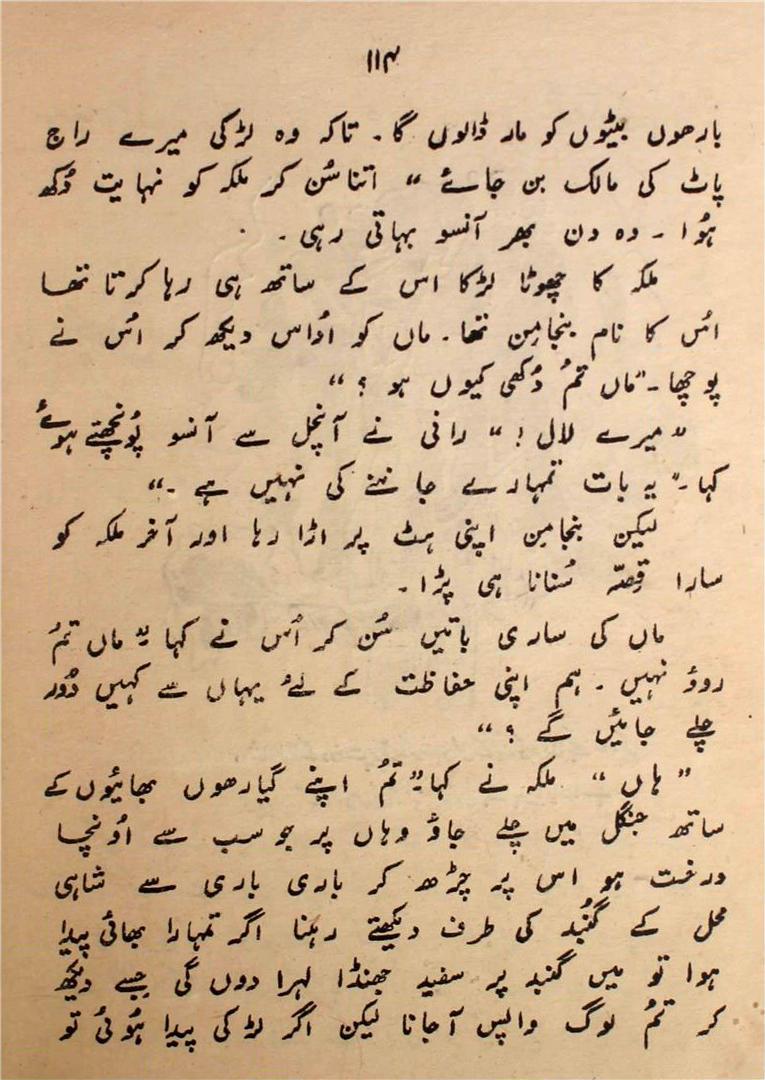 ۱۱۴
بارھوں بیٹوں کو مار ڈالوں گا۔ تاکہ وہ لڑکی میرے راج
پاٹ کی مالک بن جائے “ اتنا سُن کر ملکہ کو نہایت دُکھ
ہُوا ۔ وہ دن بھر آنسو بہاتی رہی ۔
ملکہ کا چھوٹا لڑکا اس کے ساتھ ہی رہا کرتا تھا
اُس کا نام بنجامِن تھا۔ ماں کو اُداس دیکھ کر اُس نے
پوچھا۔ ”ماں تمُ دُکھی کیوں ہو ؟ “
” میرے لال ! “ رانی نے آنچل سے آنسو پُونچھتے ہوئے
کہا۔ ” یہ بات تمہارے جاننے کی نہیں ہے ۔“
لیکن بنجامن اپنی ہٹ پر اڑا رہا اور آخر ملکہ کو
سارا قِصّہ سُنانا ہی پڑا ۔
ماں کی ساری باتیں سُن کر اُس نے کہا ” ماں تمُ
روؤ نہیں ۔ ہم اپنی حفاظت کے لئے یہاں سے کہیں دُور
چلے جائیں گے ؟ “
” ہاں “ ملکہ نے کہا ” تمُ اپنے گیارھوں بھائیوں کے
ساتھ جنگل میں چلے جاؤ وہاں پر جو سب سے اُونچا
درخت ہو اس پر چڑھ کر باری باری سے شاہی
محل کے گُنبد کی طرف دیکھتے رہنا اگر تمہارا بھائی پیدا
ہوا تو میں گنبد پر سفید جھنڈا لہرا دوں گی جِسے دیکھ
کر تمُ لوگ واپس آجانا لیکن اگر لڑکی پیدا ہُوئی تو